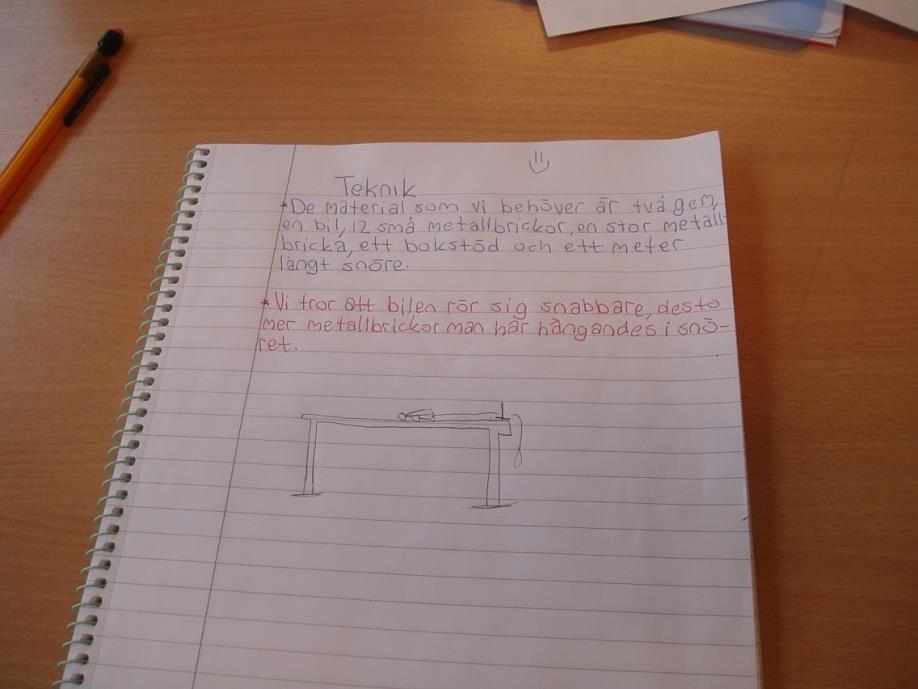 Teknik
*De material som vi behöver är två gem,
en bil, 12 små metallbrickor, en stor metall-
bricka, ett bokstöd och ett meter
långt snöre.
*Vi tror att bilen rör sig snabbare, desto
mer metallbrickor man har hängandes i snö-
ret.